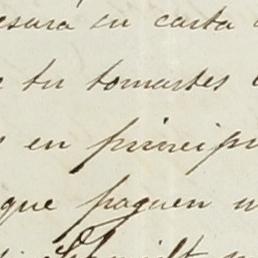 esara en carta
tu tomastes
en principi
que paguen